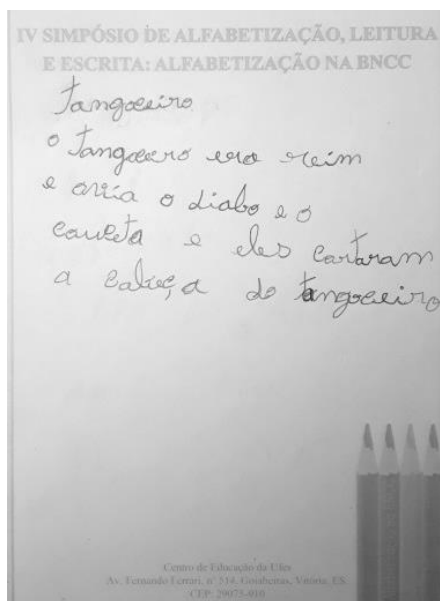 IV SIMPÓSIO DE ALFABETIZAÇÃO, LEITURA
E ESCRITA: ALFABETIZAÇÃO NA BNCC
Tangoeiro
o Tangoeero era reim
e avia o diabo e o
caueta e eles cartaram
a cabeça do tangoeeiro
Centro de Educação da Ufes
Av. Fernando Ferrari, nº 514, Goiabeiras, Vitória, ES
CEP: 29075-910